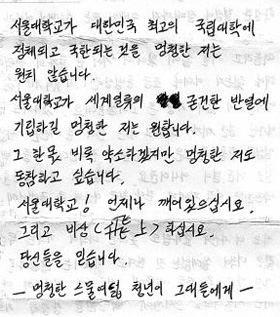 서울대학교가 대한민국 최고의 국립대학에
정체되고 국한되는것을 멍청한 저는
원치 않습니다.
서울대학교가 세계열국의 굳건한 반열에
기립하길 멍청한 저는 원합니다.
그 한몫, 비록 약소하겠지만 멍청한 저도
동참하고 싶습니다.
서울대학교! 언제나 깨어있으십시요.
그리고 비상( 上) 하십시요.
당신들을 믿습니다.
— 멍청한 스물여덟 청년이 그대들에게 —